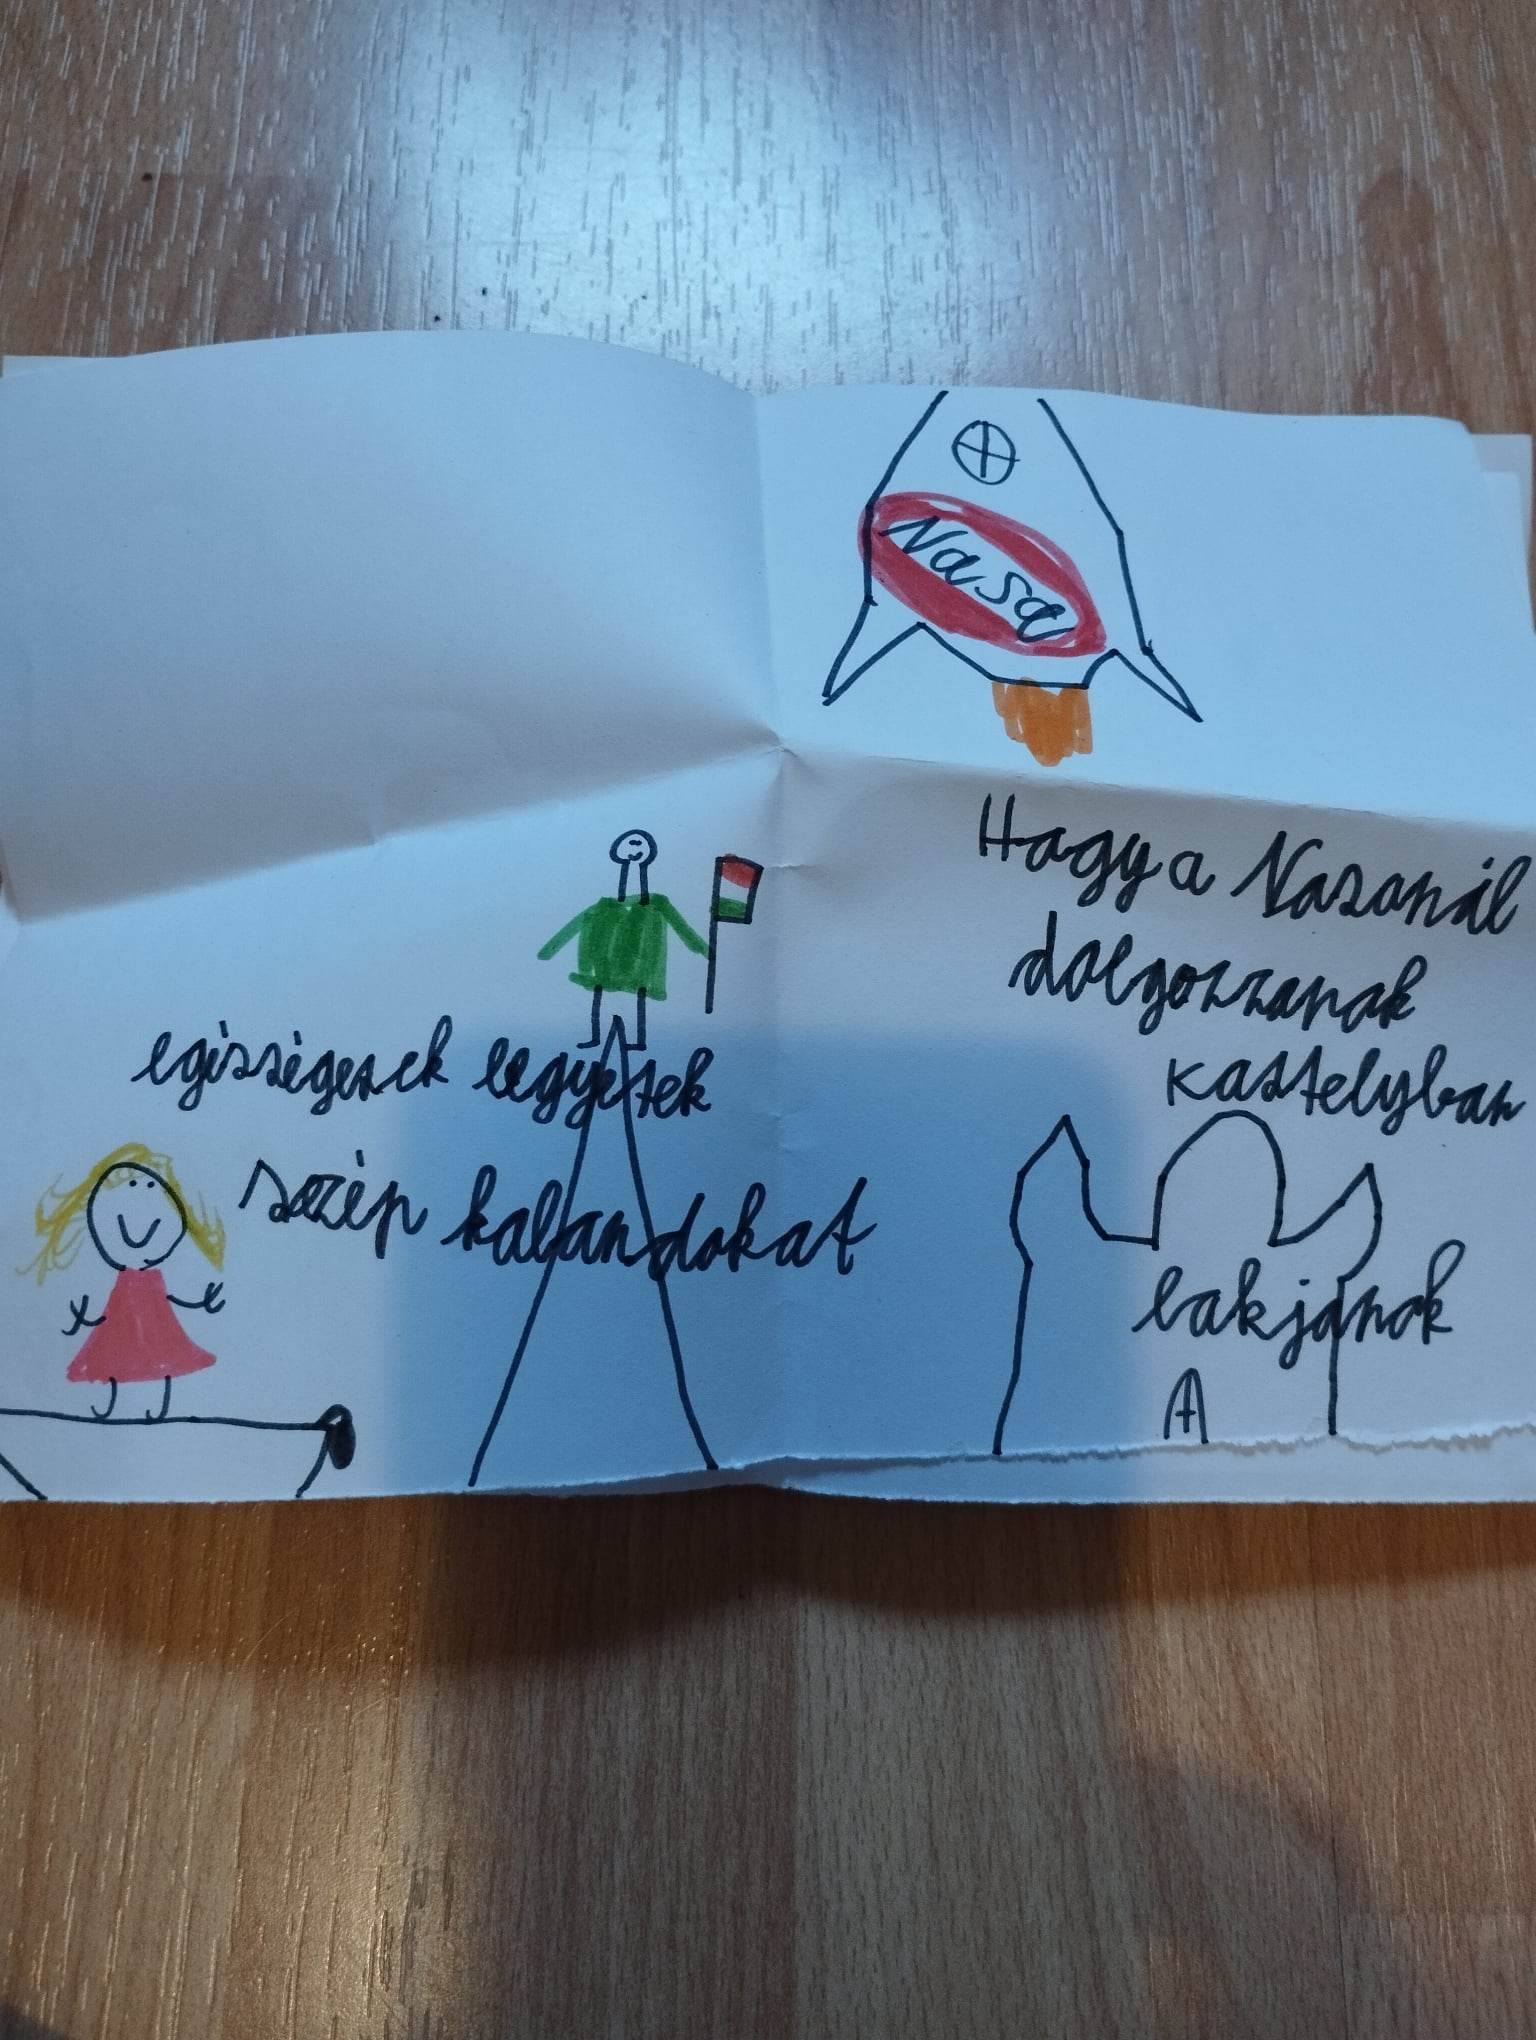 Nasa
Hagy a Nasanál
dolgozzanak
kastelyban
lakjanak
egisségesek legyetek
szép kalandokat